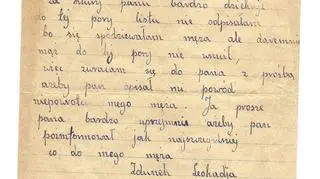 za znany panu bardzo dziękuję
do tej pory listu nie odpisałam
bo się spodziewałam męża ale daremnie
mąż do tej pory nie wrócił,
więc zwracam się do pana z prośbą
ażeby pan opisał mi powód
niepowrotu mego męża. Ja proszę
pana bardzo uprzejmie ażeby pan
poinformował jak najszczegulniej
co do mego męża
Zdunek Leokadja